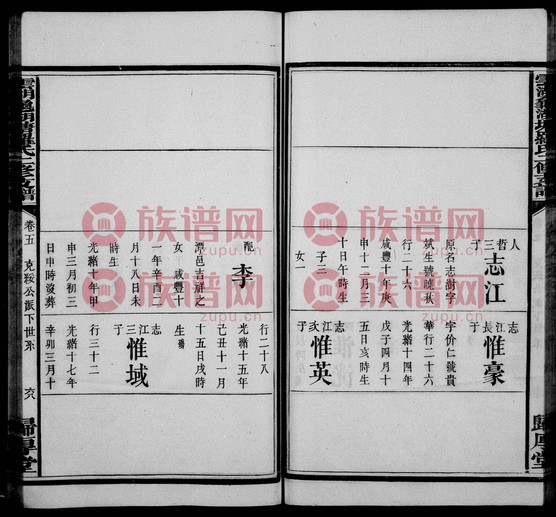 人哲三子
志江
原名志澍字
斌生號曉秋
行二十六
咸豐十年庚
申十二月三
十日午時生
子二
女一
志江長子
惟豪
字价仁號貴
華行二十六
光緒十四年
戊子四月十
五日亥時生
志江次子
惟英
行二十八
光緒十五年
己丑十一月
十五日戌時
生
配
李
潭邑吉祥之
女 咸豐十
一年辛酉二
月十八日未
時生
光緒十年甲
申三月初三
日申時沒葬
志江三子
惟域
行三十二
光緒十七年
辛卯三月十
卷五
克綏公派下世系
歸厚堂
歸厚堂
族谱网
族谱网
族谱网
族谱网